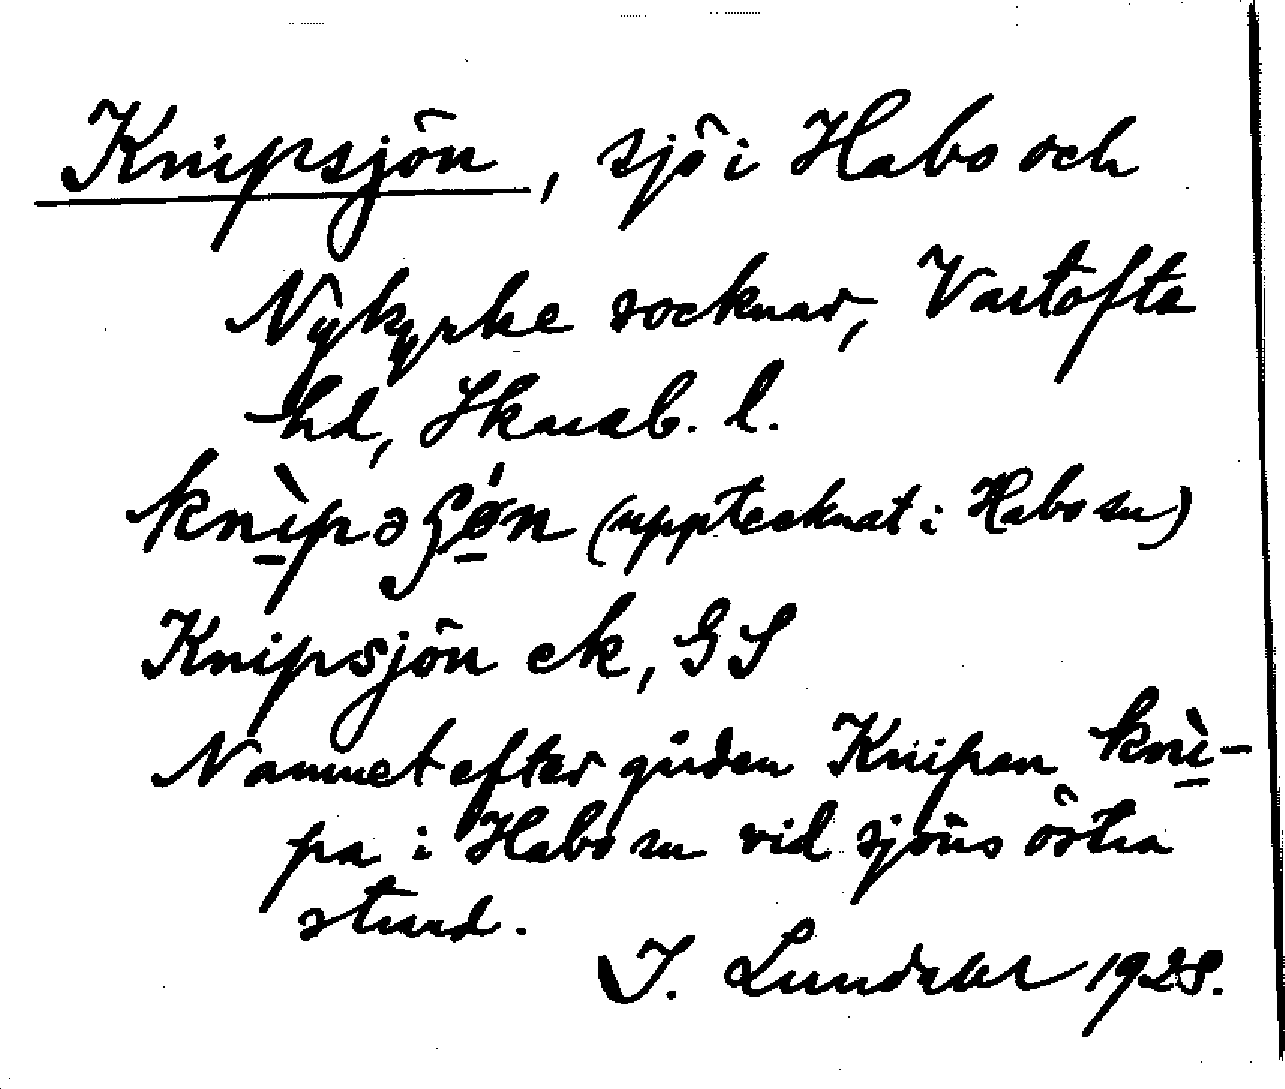 Knipsjön, sjö i Habo och
Nykyrke socknar, Vartofta
hd, Skarab. l.
knìpaʃǿn (upptecknat i Habo sn)
Knipsjön ek, GS
Namnet efter gården Knipan knì-
pa i Habo sn vid sjöns östra
strand.
I. Lundahl 1928.